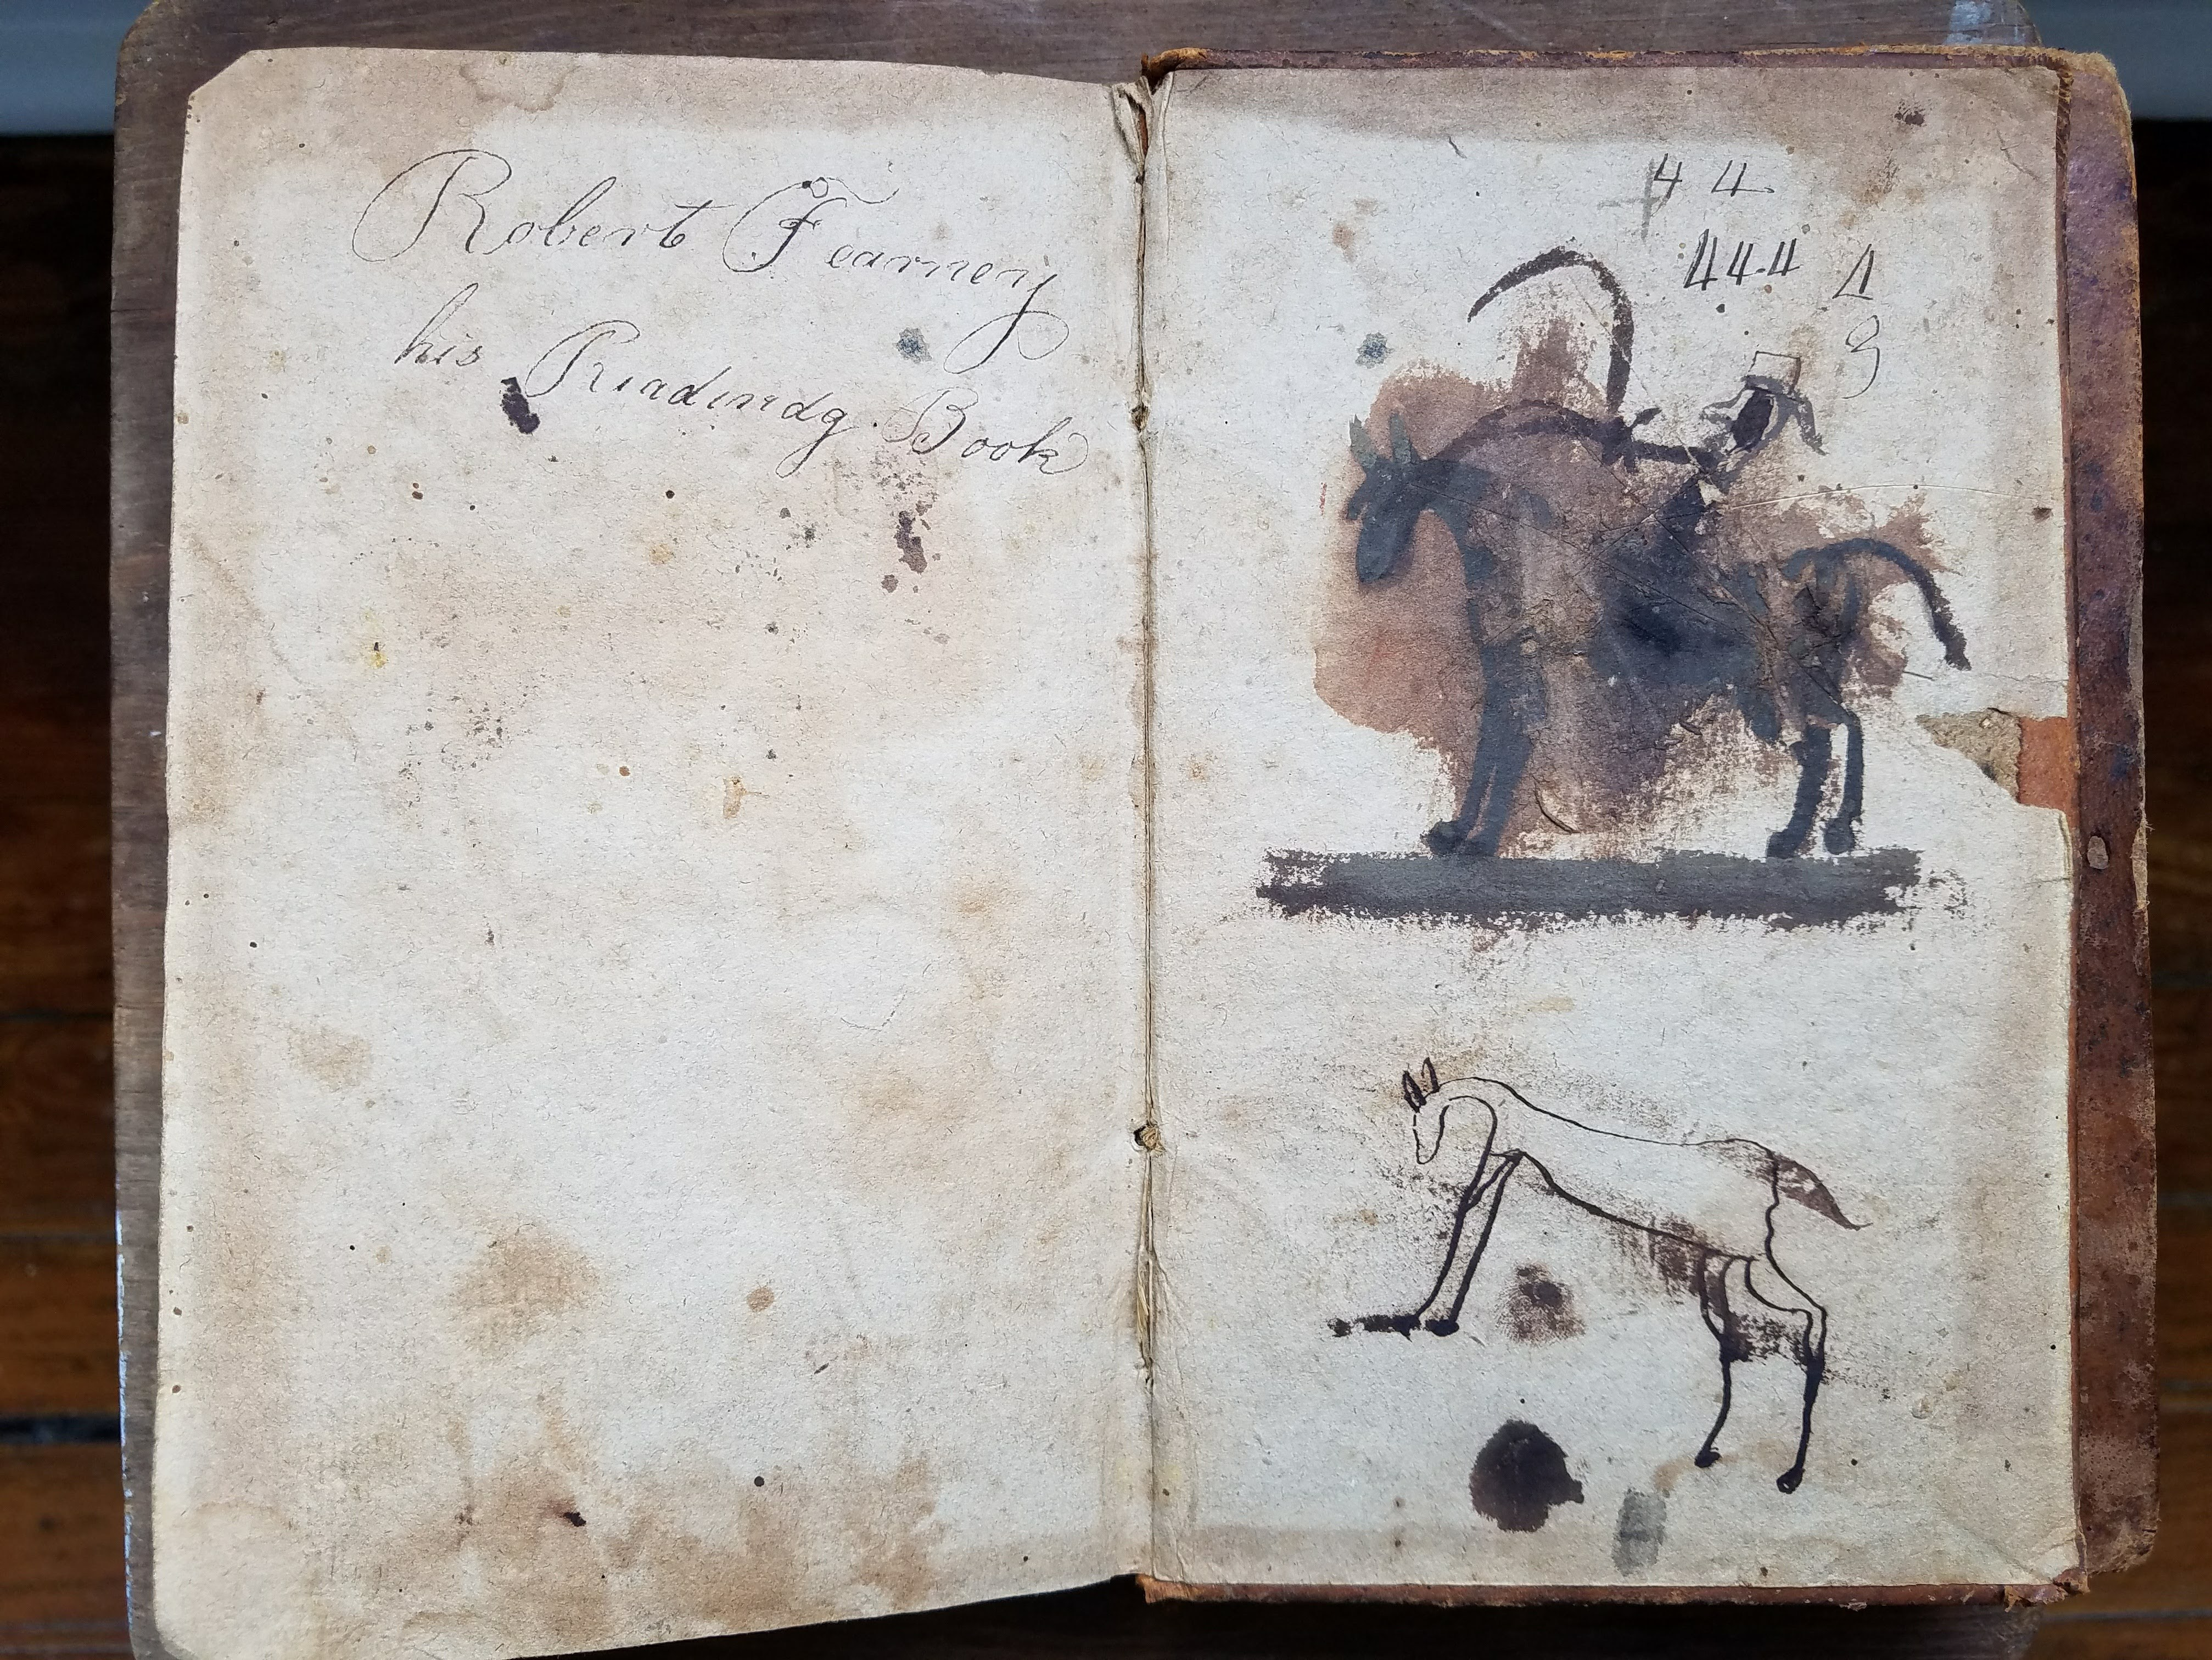 Robert Fearney
his Readindg Book
44
444 4
9